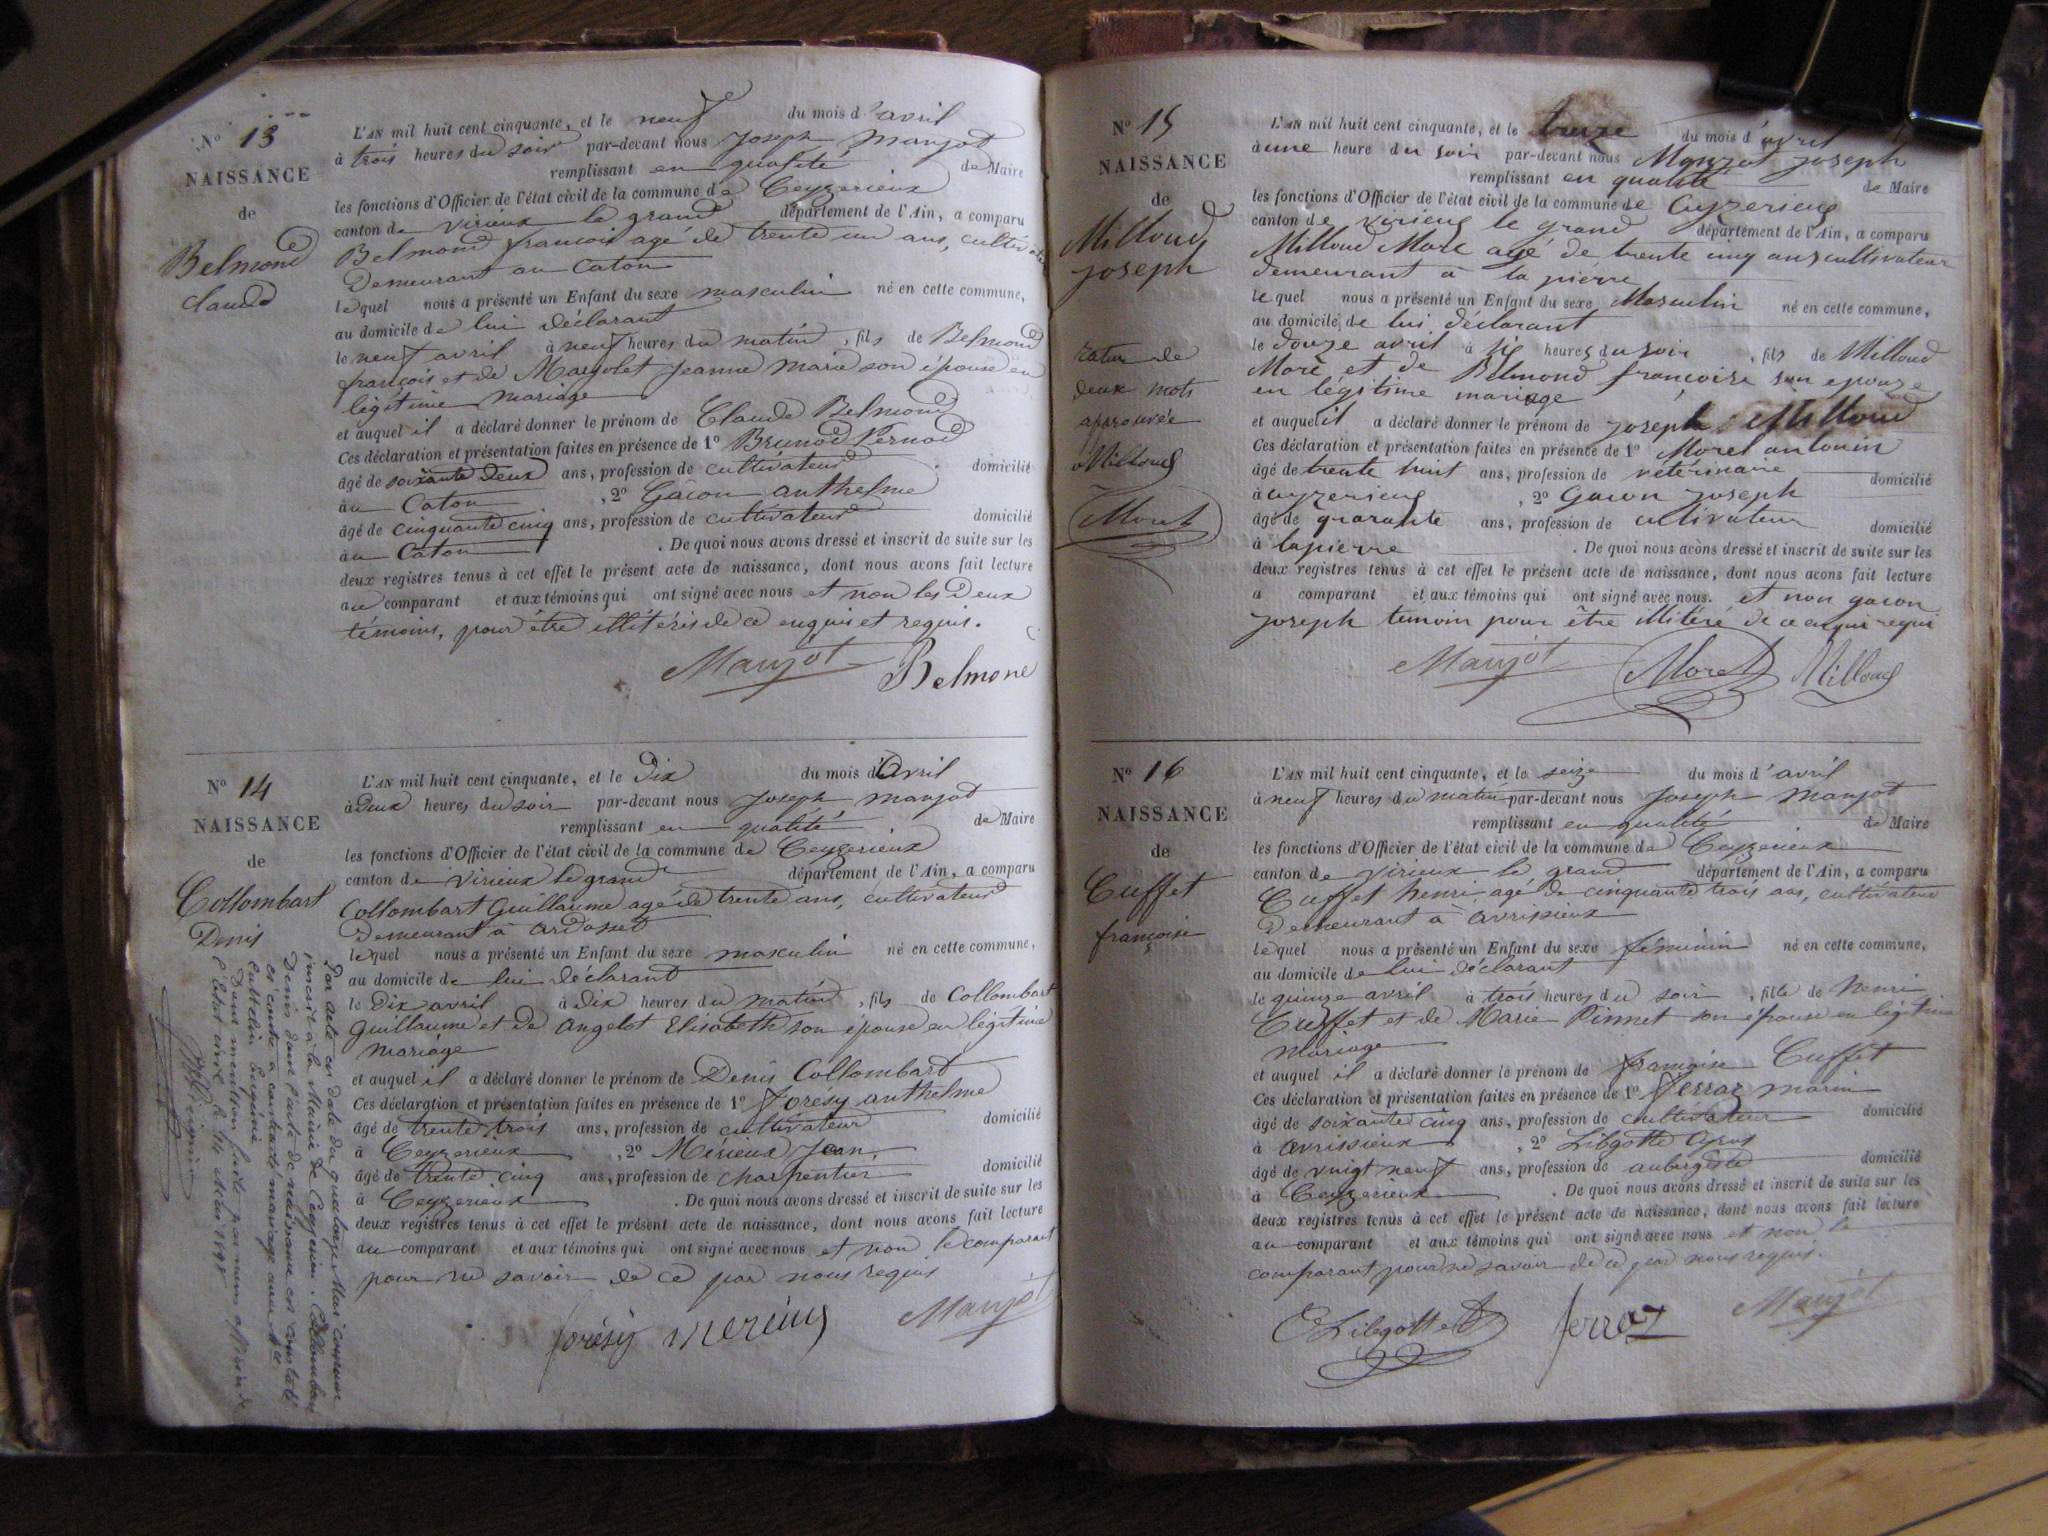 N° 13
NAISSANCE
de
Belmond
claude
L'AN mil huit cent cinquante, et le neuf du mois d'avril
à trois heures du soir par-devant nous Joseph Manjot
remplissant en qualité de Maire
les fonctions d'Officier de l'état civil de la commune de Ceyzerieux
canton de virieux le grand département de l'Ain, a comparu
Belmond francois agé de trente un ans, cultivateur
Demeurant au Caton
lequel nous a présenté un Enfant du sexe masculin né en cette commune,
au domicile de lui déclarant
le neuf avril à neuf heures du matin, fils de Belmond
françois et de Marjolet Jeanne Marie son épouse en
légitime mariage
et auquel il a déclaré donner le prénom de Claude Belmond
Ces déclaration et présentation faites en présence de 1° Brunod
âgé de soixante deux ans, profession de cultivateur domicilié
au Caton, 2° Gâcon anthelme
âgé de cinquante cinq ans, profession de cultivateur domicilié
au Caton. De quoi nous avons dressé et inscrit de suite sur les
deux registres tenus à cet effet le présent acte de naissance, dont nous avons fait lecture
au comparant et aux témoins qui ont signé avec nous et non les deux
témoins, pour être illitérés de ce enquis et requis.
Manjot Belmone
N° 14
NAISSANCE
de
Collombart
Denis
L'AN mil huit cent cinquante, et le Dix du mois d'Avril
à Deux heures du soir par-devant nous Joseph manjot
remplissant en qualité de Maire
les fonctions d'Officier de l'état civil de la commune de Ceyzerieux
canton de virieux le grand département de l'Ain, a comparu
Collombart Guillaume agé de trente ans, cultivateur
Demeurant à ardosset
lequel nous a présenté un Enfant du sexe masculin né en cette commune,
au domicile de lui déclarant
le Dix avril à dix heures du matin, fils de Collombart
Guillaume et de angelot Elisabeth son épouse en légitime
mariage
et auquel il a déclaré donner le prénom de Denis Collombart
Ces déclaration et présentation faites en présence de 1° foresy anthelme
âgé de trente trois ans, profession de cultivateur domicilié
à Ceyzerieux, 2° Mérieux Jean,
âgé de trente cinq ans, profession de charpentier domicilié
à Ceyzerieux. De quoi nous avons dressé et inscrit de suite sur les
deux registres tenus à cet effet le présent acte de naissance, dont nous avons fait lecture
au comparant et aux témoins qui ont signé avec nous et non le comparant
pour ne savoir de ce par nous requis
forésy merieux Manjot
Par acte en date du quatorze Mai courant
inscrit à la Mairie de Ceyzerieu, Collombart
Denis dont l'acte de naissance est constaté
ci contre a contracté mariage avec Mlle
Eugénie
Dont mention faite par nous officier de
l'Etat civil le
N° 15
NAISSANCE
de
Milloud
joseph
rature de
deux mots
approuvée
Milloud
Morel
L'AN mil huit cent cinquante, et le treize du mois d'avril
à une heure du soir par-devant nous Manjot joseph
remplissant en qualité de Maire
les fonctions d'Officier de l'état civil de la commune de Ceyzerieux
canton de virieux le grand département de l'Ain, a comparu
Milloud Marc agé de trente cinq ans cultivateur
demeurant à la pierre
lequel nous a présenté un Enfant du sexe Masculin né en cette commune,
au domicile de lui déclarant
le douze avril à six heures du soir, fils de Milloud
Marc et de Belmond françoise son epouse
en légitime mariage
et auquel il a déclaré donner le prénom de joseph Milloud
Ces déclaration et présentation faites en présence de 1° Morel antonin
âgé de trente huit ans, profession de vétérinaire domicilié
à cyzerieux, 2° Gacon joseph
âgé de quarante ans, profession de cultivateur domicilié
à lapierre. De quoi nous avons dressé et inscrit de suite sur les
deux registres tenus à cet effet le présent acte de naissance, dont nous avons fait lecture
a comparant et aux témoins qui ont signé avec nous. et non gacon
joseph temoin pour être illitéré de ce enqui requi
Manjot Morel Milloud
N° 16
NAISSANCE
de
Cuffet
françoise
L'AN mil huit cent cinquante, et le seize du mois d'avril
à neuf heures du matin par-devant nous Joseph manjot
remplissant en qualité de Maire
les fonctions d'Officier de l'état civil de la commune de Ceyzerieux
canton de virieux le grand département de l'Ain, a comparu
Cuffet henri, agé de cinquante trois ans, cultivateur
Demeurant à avrissieux
lequel nous a présenté un Enfant du sexe féminin né en cette commune,
au domicile de lui déclarant
le quinze avril à trois heures du soir, fille de henri
Cuffet et de Marie Pinnet son épouse en légitime
Mariage
et auquel il a déclaré donner le prénom de françoise Cuffet
Ces déclaration et présentation faites en présence de 1° ferraz marin
âgé de soixante cinq ans, profession de cultivateur domicilié
à avrissieux, 2° Libgotte Cyrus
âgé de vingt neuf ans, profession de aubergiste domicilié
à Ceyzerieux. De quoi nous avons dressé et inscrit de suite sur les
deux registres tenus à cet effet le présent acte de naissance, dont nous avons fait lecture
au comparant et aux témoins qui ont signé avec nous et non le
comparant pour ne savoir de ce par nous requis.
C Libgotte ferraz Manjot